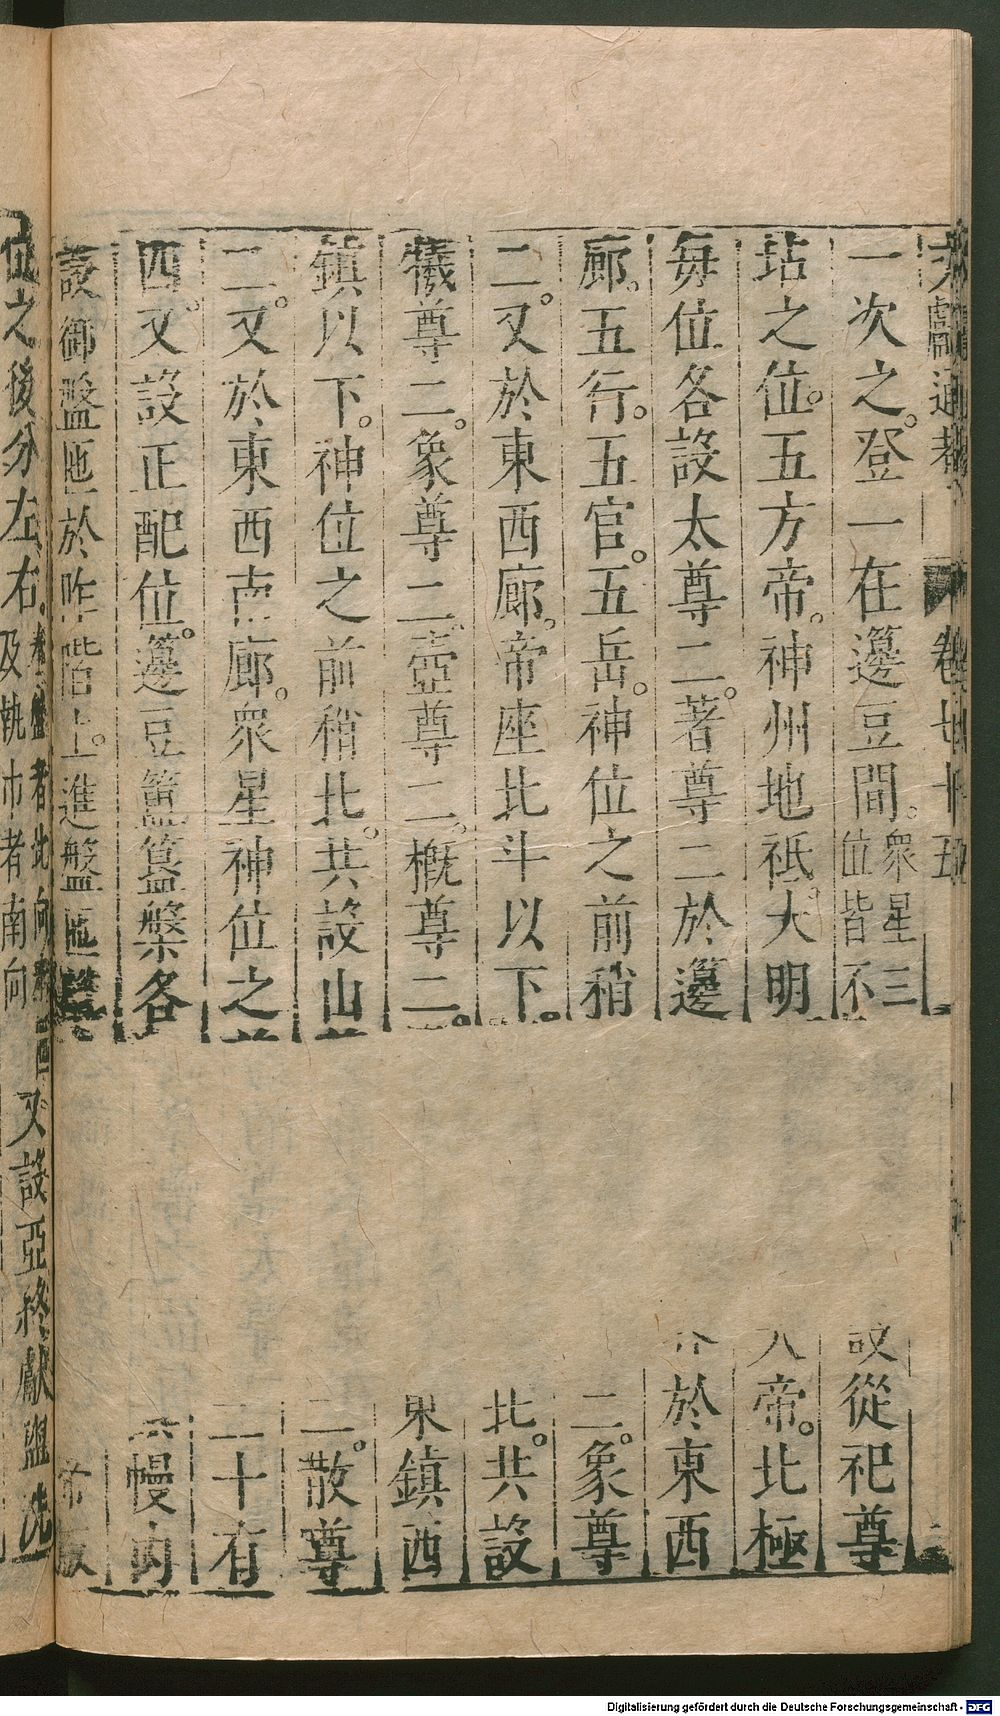 文獻通考 卷七十五
一次之。登一在籩豆間。衆星三位皆不 設從祀尊
坫之位。五方帝。神州地祗。大明 帝。北極
每位各設太尊二。著尊二於籩 於東西
廊。五行。五官。五岳。神位之前稍 二。象尊
二。又於東西廊。帝座北斗以下。 北。共設
犧尊二。象尊二。壺尊二。概尊二。 鎮西
鎮以下。神位之前稍北。共設山 二。散尊
二。又於東西南廊。衆星神位之 二十有
四。又設正配位。籩豆簠簋槃各 幔內
設御盤匜於阼階上。進盤匜
位之後分左右。者北向 及執巾者南向 又設亞終獻盥洗
Digitalisierung gefördert durch die Deutsche Forschungsgemeinschaft - DFG